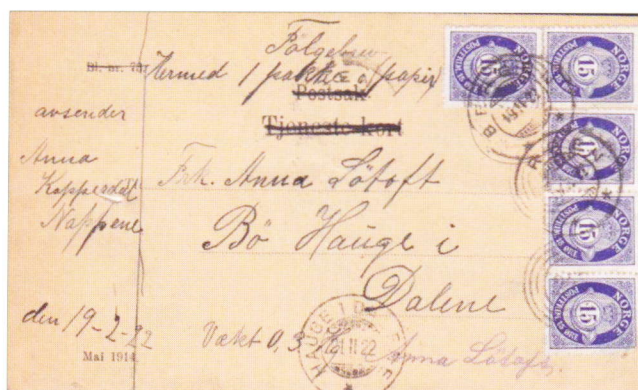 Følgebrev
Bl. nr. 731
Hermed 1 pakke papir
Postsak.
Tjeneste-kort
avsender
Anna
Kopperdal
Nappene
Frk. Anna Løtoft
Bö Hauge i
Dalene
den 19-2-22
Vekt 0,3
Anna Løtoft
Mai 1914
HAUGE I D
21 II 22
19 II 22
NORGE
15
NORGE
15
NORGE
15
NORGE
15
NORGE
15